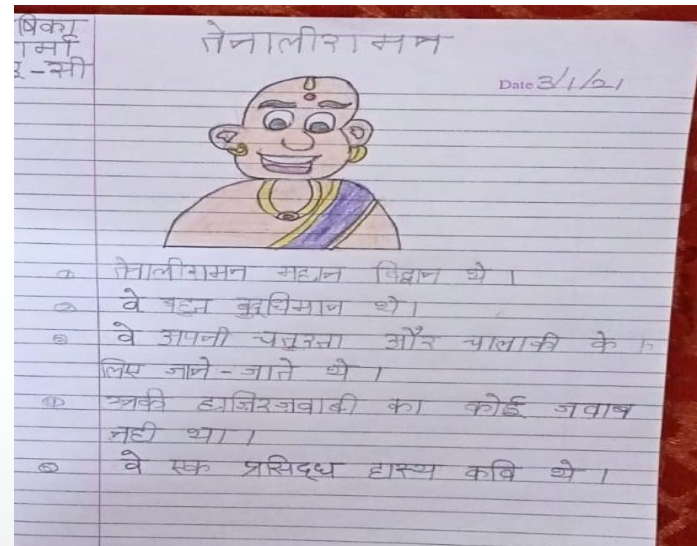 षिका
र्मा
- सी
तेनालीरामन
Date 3/1/21
① तेनालीरामन महान विद्वान थे ।
② वे बहुत बुद्धिमान थे ।
③ वे अपनी चतुरता और चालाकी के
लिए जाने - जाते थे ।
④ उनकी हाजिरजवाबी का कोई जवाब
नही था ।
⑤ वे एक प्रसिद्ध हास्य कवि थे ।